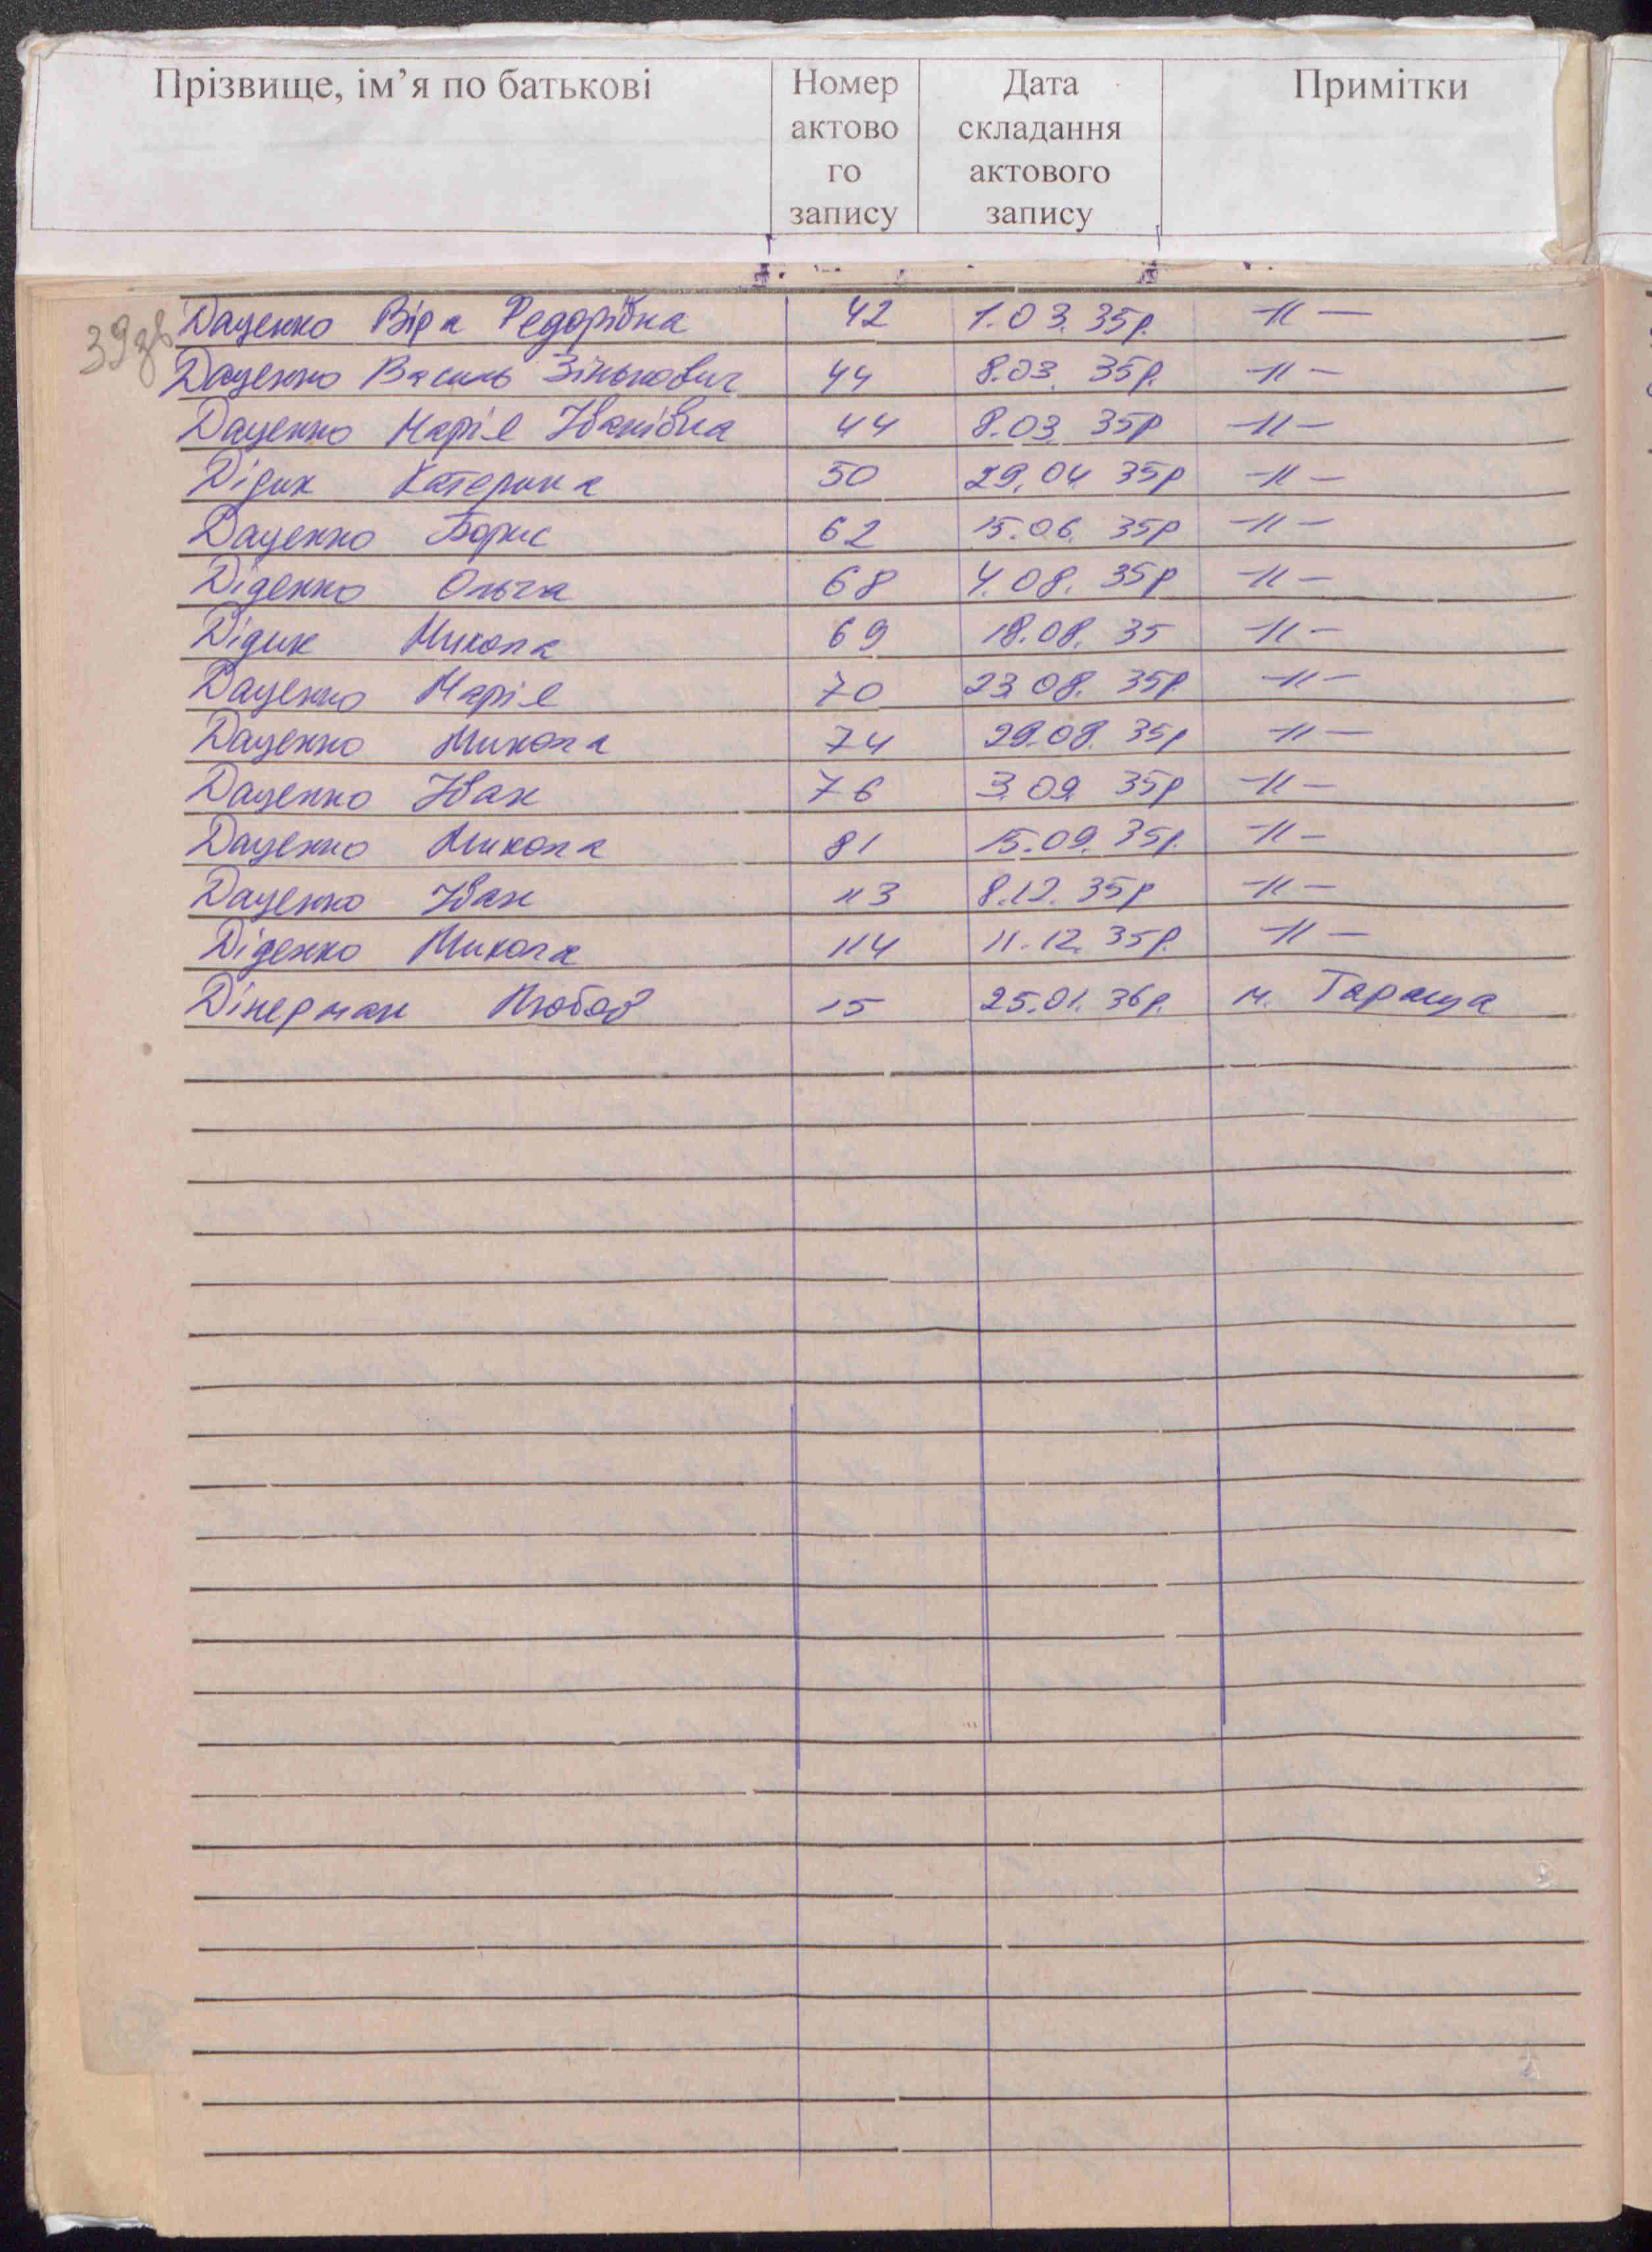 Прізвище, ім’я по батькові Номер актово го запису Дата складання актового запису Примітки
39зв
Даценко Віра Федорівна 42 1.03.35р. -//-
Даценко Василь Зінькович 44 8.03.35р. -//-
Даценко Марія Іванівна 44 8.03.35р -//-
Дідик Катерина 50 29.04.35р -//-
Даценко Борис 62 15.06.35р -//-
Діденко Ольга 68 4.08.35р -//-
Дідик Микола 69 18.08.35 -//-
Даценко Марія 70 23.08.35р. -//-
Даценко Микола 74 29.08.35р -//-
Даценко Іван 76 3.09.35р -//-
Даценко Микола 81 15.09.35р. -//-
Даценко Іван 113 8.12.35р -//-
Діденко Микола 114 11.12.35р. -//-
Дінерман Любов 15 25.01.36р. м. Тараща